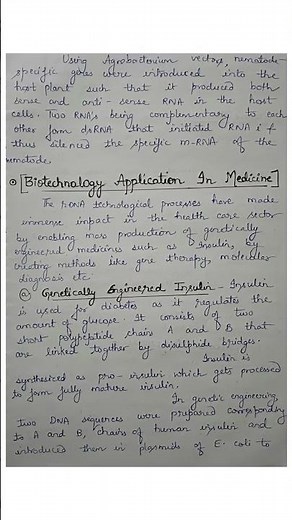 Using Agrobacterium vectors, nematode-
specific genes were introduced into the
host plant such that it produced both
sense and anti-sense RNA in the host
cells. Two RNA's being complementary to each
other form dsRNA that initiated RNA i &
thus silenced the specific m-RNA of the
nematode.
[Biotechnology Application In Medicine]
The rDNA technological processes have made
immense impact in the health care sector
by enabling mass production of genetically
engineered medicines such as Insulin, by
creating methods like gene therapy, molecular
diagnosis etc.
@ Genetically Engineered Insulin - Insulin
is used for diabetes as it regulates the
amount of glucose. It consists of two
short polypeptide chains A and B that
are linked together by disulphide bridges.
Insulin is
synthesized as pro-insulin which gets processed
to form fully mature insulin.
In genetic engineering,
two DNA sequences were prepared corresponding
to A and B, chains of human insulin and
introduced them in plasmids of E. coli to